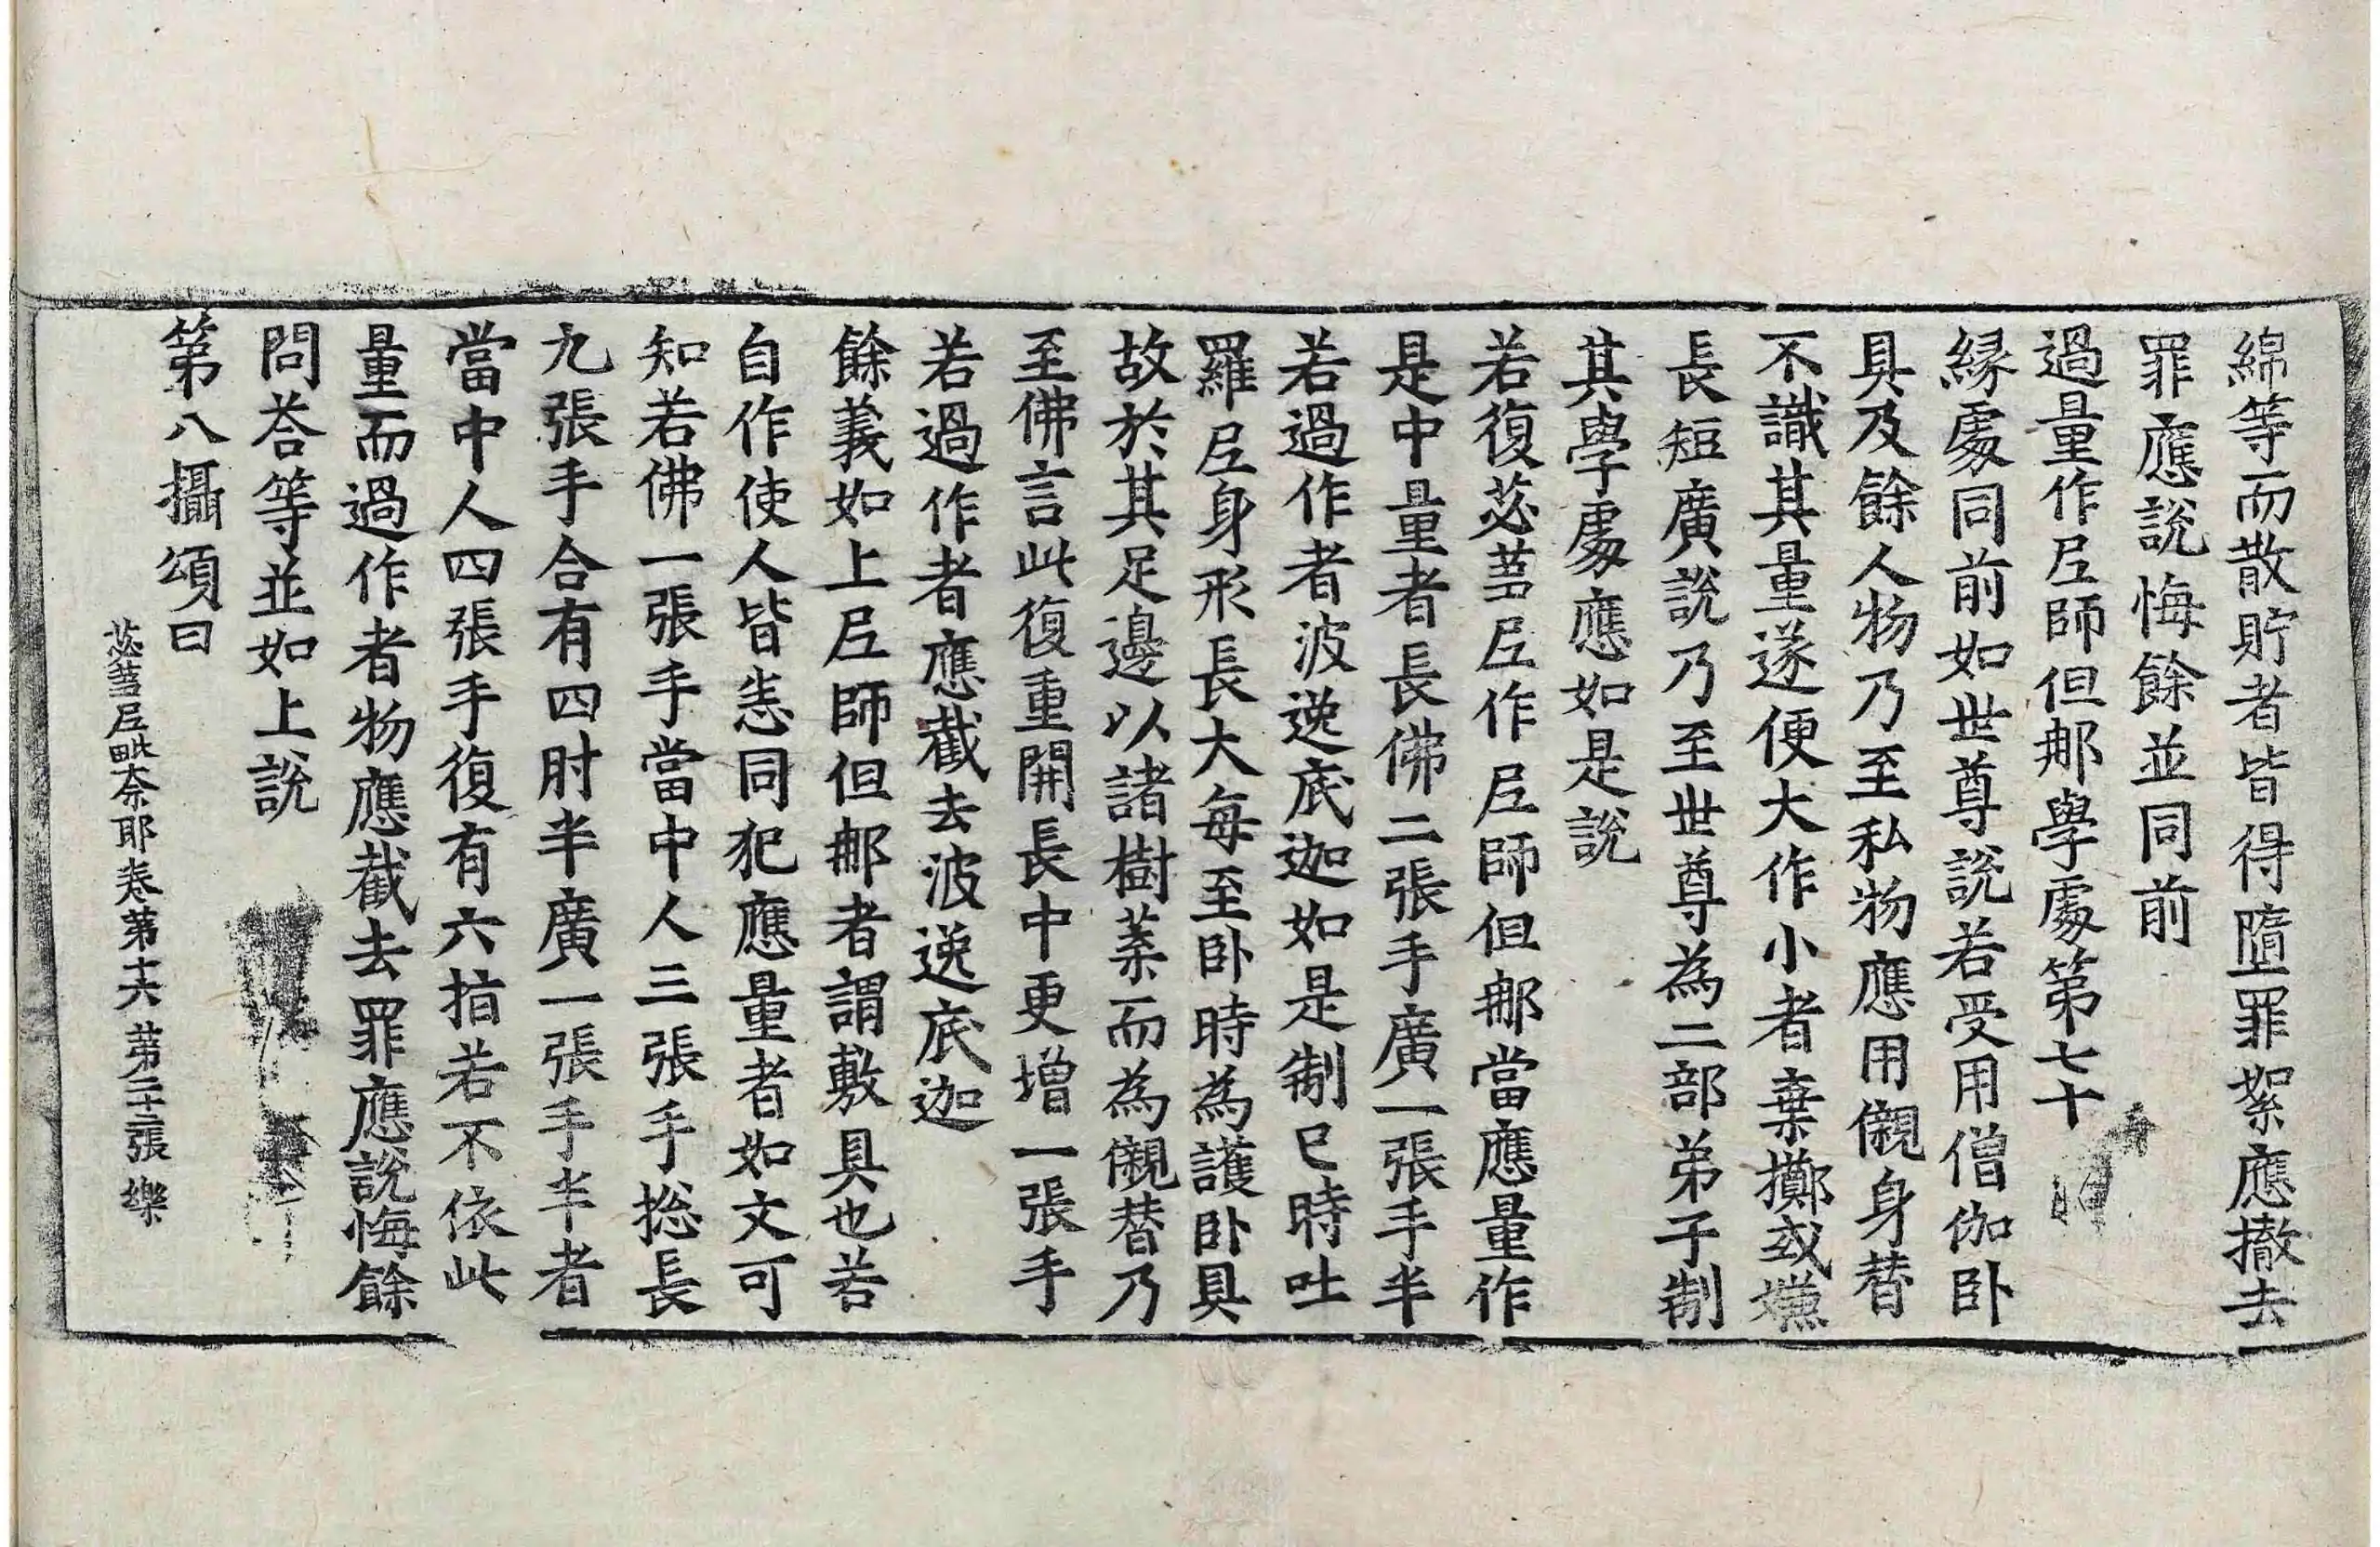 綿等而散貯者皆得墮罪絮應撤去
罪應說悔餘並同前
過量作尼師但𨚗學處第七十
緣處同前如世尊說若受用僧伽卧
具及餘人物乃至私物應用儭身替
不識其量遂便大作小者棄擲或嫌
長短廣說乃至世尊為二部弟子制
其學處應如是說
若復苾蒭尼作尼師但𨚗當應量作
是中量者長佛二張手廣一張手半
若過作者波逸底迦如是制已時吐
羅尼身形長大每至卧時為護卧具
故於其足邊以諸樹葉而為儭替乃
至佛言此復重開長中更增一張手
若過作者應截去波逸底迦
餘義如上尼師但𨚗者謂敷具也若
自作使人皆恙同犯應量者如文可
知若佛一張手當中人三張手捴長
九張手合有四肘半廣一張手半者
當中人四張手復有六指若不依此
量而過作者物應截去罪應說悔餘
問荅等並如上說
第八攝頌曰
苾蒭尼毗奈耶卷第十六 第二十三張 樂